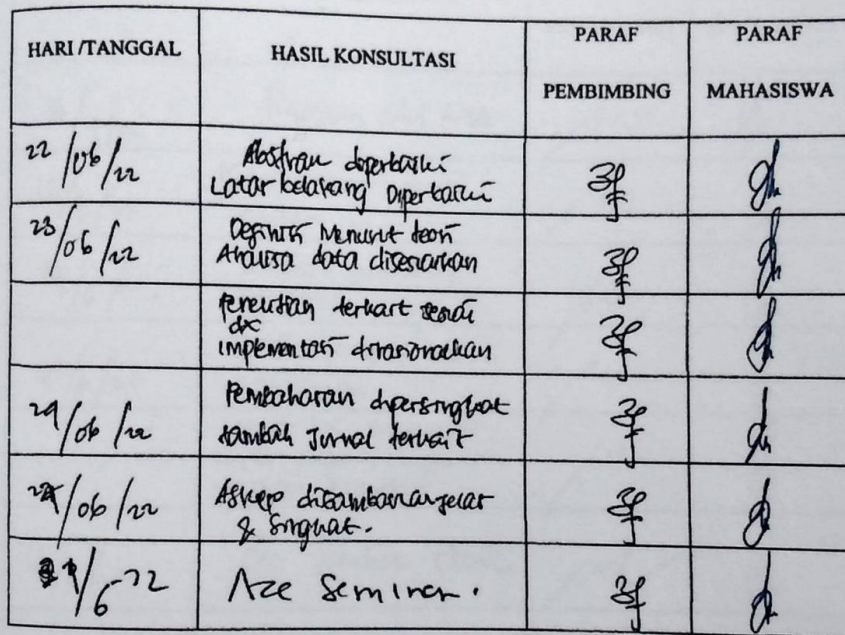 HARI /TANGGAL
HASIL KONSULTASI
PARAF PEMBIMBING
PARAF MAHASISWA
22/06/22
Abstrak diperbaiki
Latar belakang Diperbaiki
23/06/22
Definisi Menurut teori
Analisa data disesuaikan
Penelitian terkait sesuai
dx
implementasi dirasionalkan
24/06/22
Pembahasan dipersingkat
tambah Jurnal terkait
/06/22
Askep
& Singkat.
/6-22
Acc Seminar.